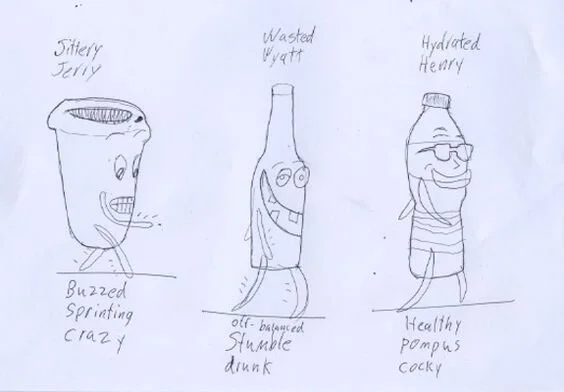 Jittery
Jerry
Wasted
Wyatt
Hydrated
Henry
Buzzed
Sprinting
crazy
off-balanced
Stumble
drunk
Healthy
pompus
cocky